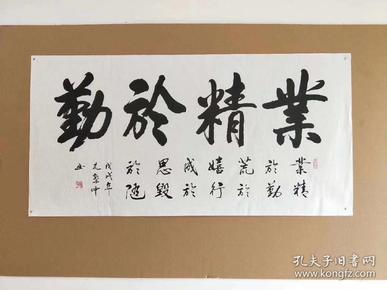 業精於勤
業精
於勤
荒於
嬉行
成於
思毀
於隨
戊戌年
孔夫子旧书网
www.kongfz.com